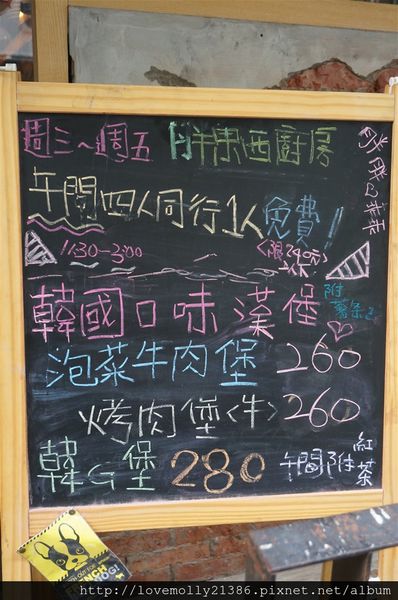 週三~週五 胖東西廚房
午間四人同行1人免費!
11:30-3:00 <限290元>
韓國口味漢堡 附薯條
泡菜牛肉堡 260
烤肉堡<牛> 260
韓G堡 280 午間附紅茶
http://lovemolly21386.pixnet.net/album